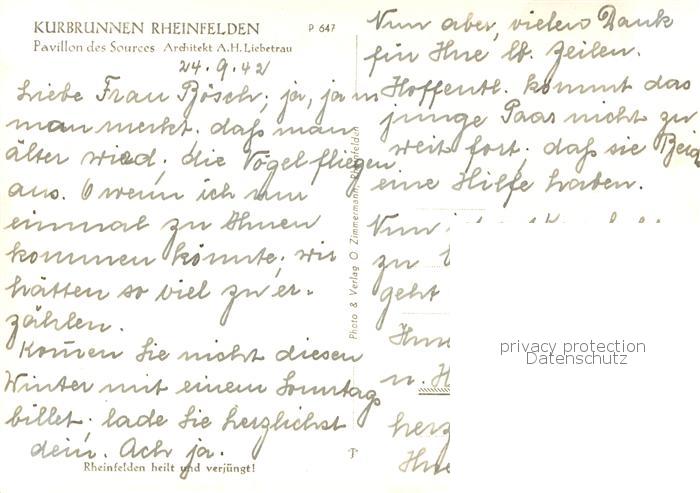 KURBRUNNEN RHEINFELDEN
P 647
Pavillon des Sources Architekt A. H. Liebetrau
24.9.42
Liebe Frau Bösch, ja, ja
man merkt, daß man
älter wird, die Vögel fliegen
aus. O wenn ich nur
einmal zu Ihnen
kommen könnte, wir
hätten so viel zu er-
zählen.
Kom̄en Sie nicht diesen
Winter mit einem Sonntags
billet, lade Sie herzlichst
dein. Ach ja.
Rheinfelden heilt und verjüngt!
Photo & Verlag O. Zimmermann, Rheinfelden
Nun aber, vielen Dank
für Ihre lb. Zeilen.
Hoffentl. kommt das
junge Paar nicht zu
weit fort, daß sie
eine Hilfe haben.
Nun
zu
geht
Ihne
u. H
herz
Ihne
privacy protection
Datenschutz